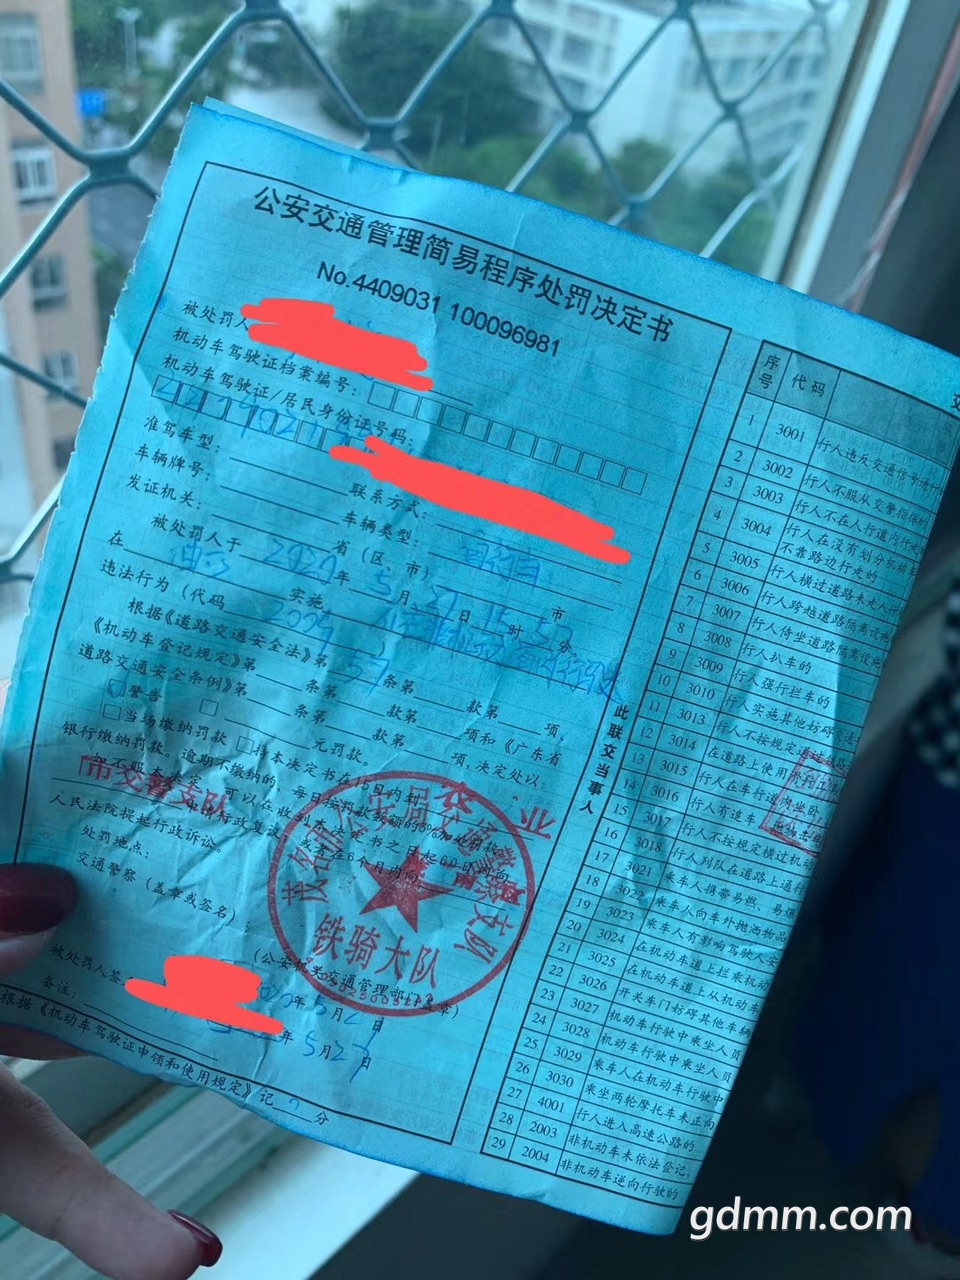 公安交通管理简易程序处罚决定书
No.4409031 100096981
被处罚人
机动车驾驶证档案编号：
机动车驾驶证/居民身份证号码：
准驾车型： 联系方式：
车辆牌号： 车辆类型： 自行车
发证机关： 省（区、市） 市
被处罚人于 2020 年 5 月 21 日 15 时 53 分
在 实施
违法行为（代码
根据《道路交通安全法》第 57 条第 款第 项，
《机动车登记规定》第 条第 款第 项和《广东省
道路交通安全条例》第 条第 款第 项，决定处以：
警告 元罚款。
当场缴纳罚款 持本决定书在15日内到
银行缴纳罚款。逾期不缴纳的，每日按罚款数额的3%加处罚款。
如不服本决定，可以在收到本决定书之日起60日内向
市交警支队 申请行政复议，或者在6个月内向
人民法院提起行政诉讼。
处罚地点：
交通警察（盖章或签名）：
铁骑大队
（公安机关交通管理部门盖章）
被处罚人签
年 5 月 2 日
备注：
年 5 月 2 日
根据《机动车驾驶证申领和使用规定》记 分
此联交当事人
序号 代码
1 3001 行人违反交通信号通行
2 3002 行人不服从交警指挥的
3 3003 行人不在人行道内行走
4 3004 行人在没有划分机动车
不靠路边行走的
5 3005 行人横过道路未走人行
6 3006 行人跨越道路隔离设施
7 3007 行人倚坐道路隔离设施
8 3008 行人扒车的
9 3009 行人强行拦车的
10 3010 行人实施其他妨碍交通
11 3013 行人不按规定
12 3014 在道路上使用
13 3015 行人在车行道内坐卧
14 3016 行人有追车、抛物击
15 3017 行人不按规定横过机动
16 3018 行人列队在道路上通行
17 3021 乘车人携带易燃、易爆
18 3022 乘车人向车外抛洒物品
19 3023 乘车人有影响驾驶人安
20 3024 在机动车道上拦乘机动
21 3025 在机动车道上从机动车
22 3026 开关车门妨碍其他车辆
23 3027 机动车行驶中乘坐人员
24 3028 机动车行驶中乘坐人员
25 3029 乘车人在机动车行驶中
26 3030 乘坐两轮摩托车未正向
27 4001 行人进入高速公路的
28 2003 非机动车未依法登记，
29 2004 非机动车逆向行驶的
gdmm.com